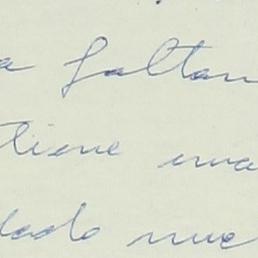 a faltan
tiene una
dado nue